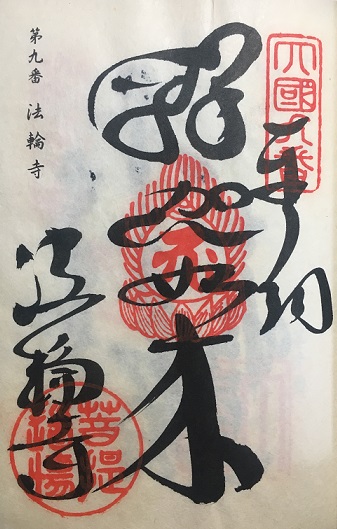 四國九番
奉納
釈迦如来
法輪寺
第九番 法輪寺